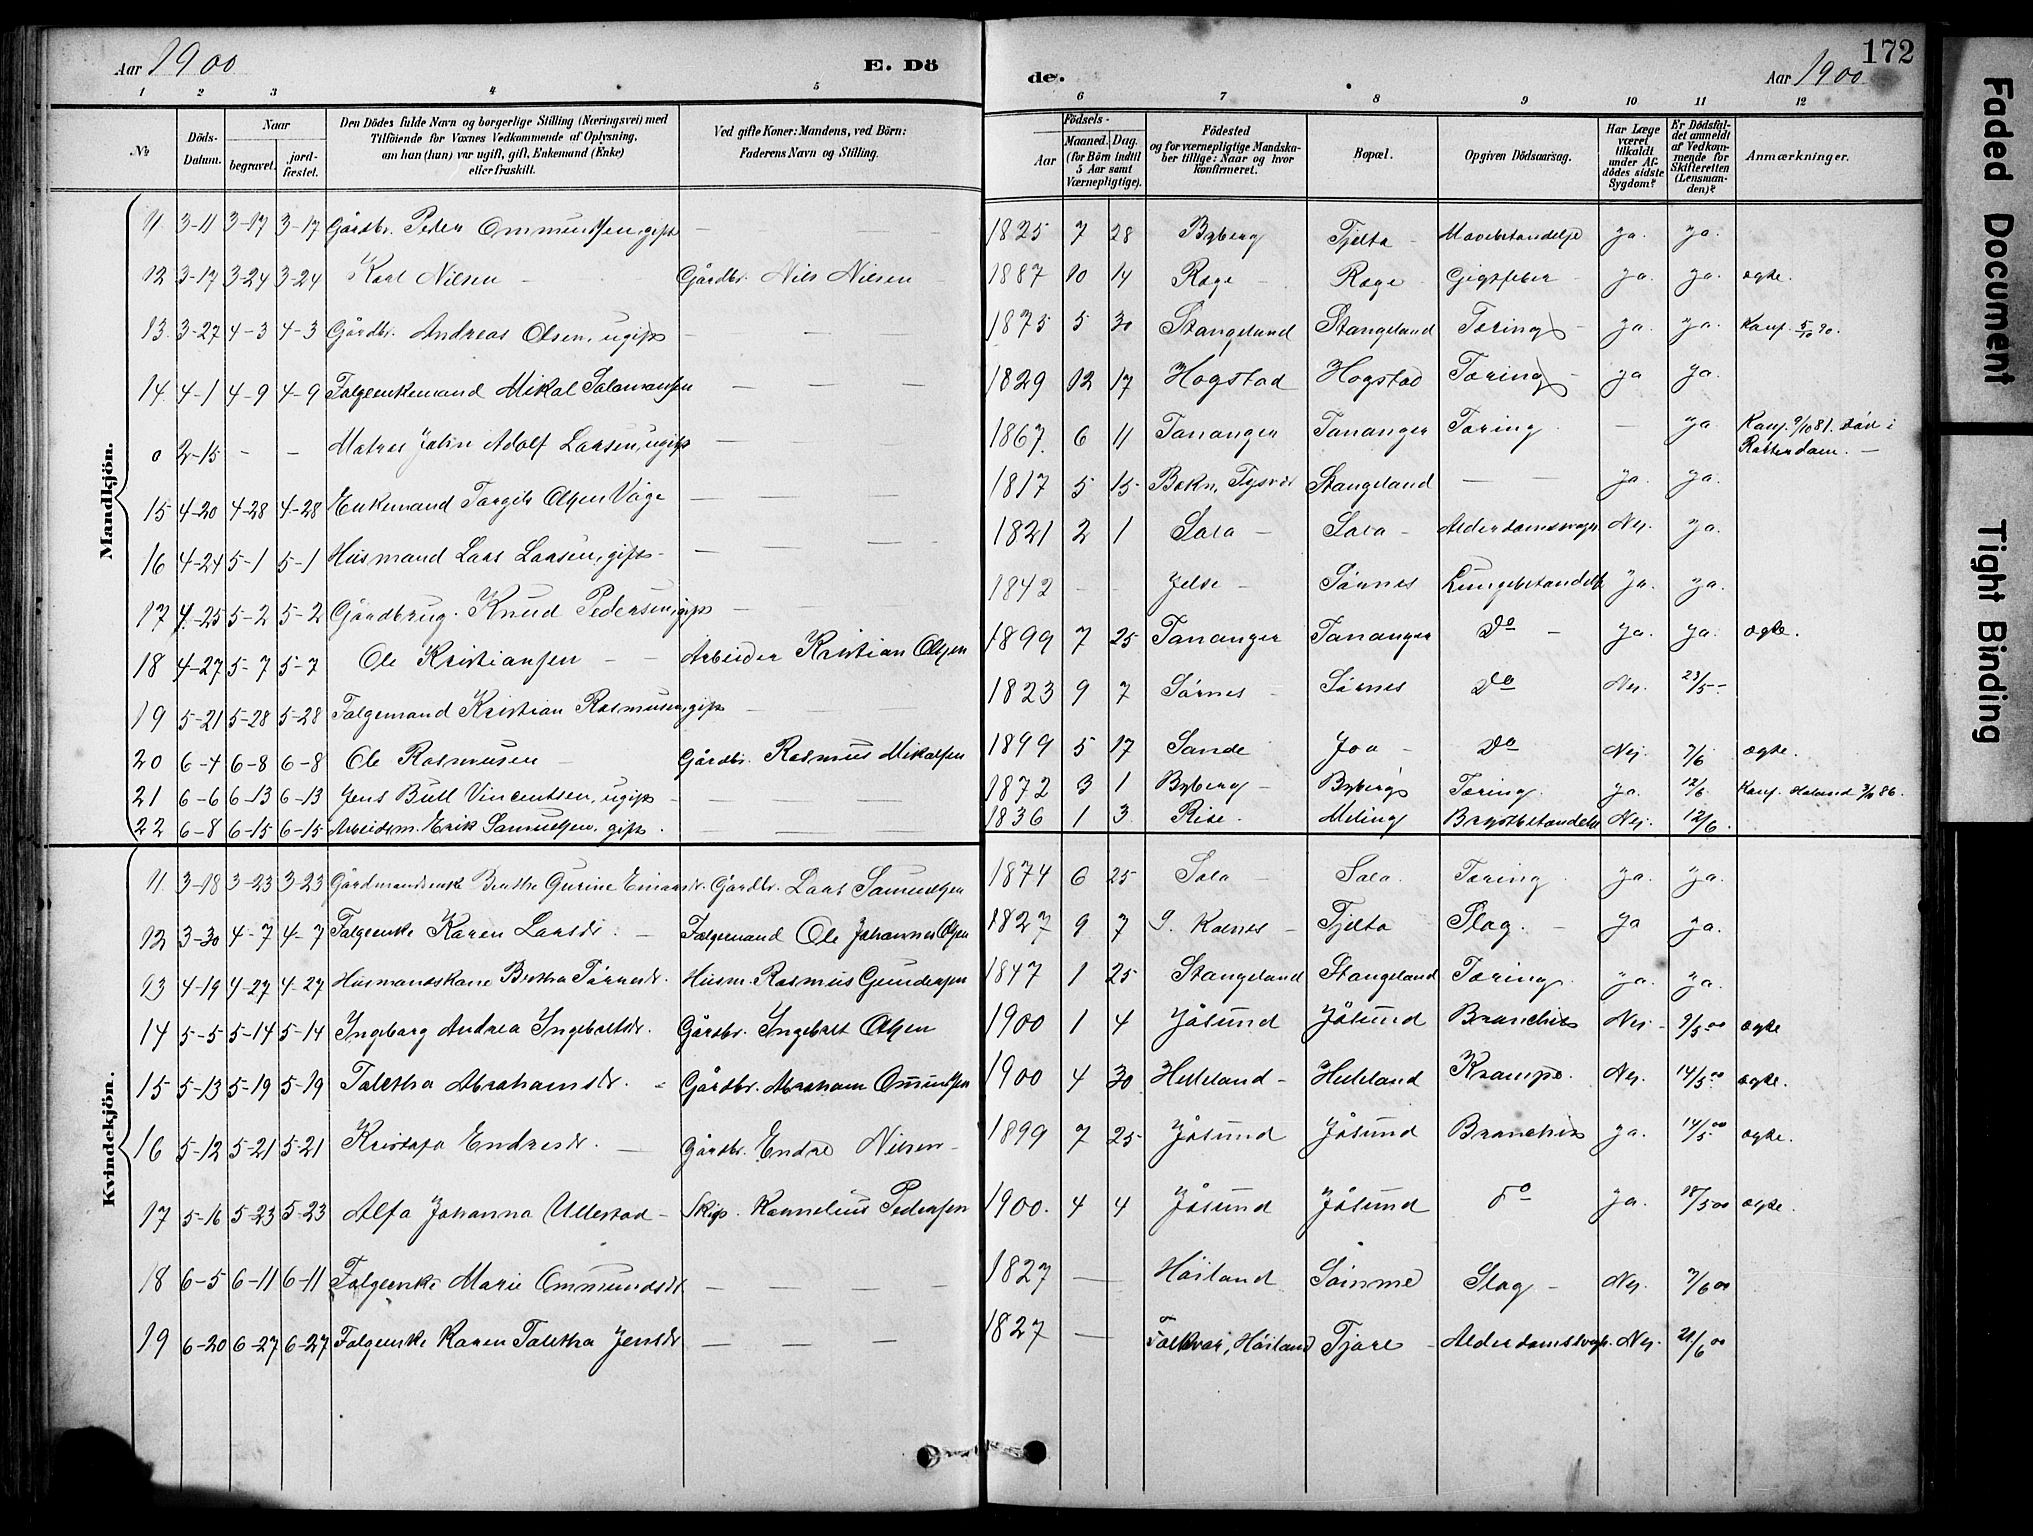 Aar 1900
E. Dö
de.
172
Aar 1900
1 2 3 4 5 6 7 8 9 10 11 12
№ Döds-Datum. Naar begravet. jord-fæstet. Den Dödes fulde Navn og borgerlige Stilling (Næringsvei) med Tilföiende for Voxnes Vedkommende af Oplysning, om han (hun) var ugift, gift, Enkemand (Enke) eller fraskilt. Ved gifte Koner: Mandens, ved Börn: Faderens Navn og Stilling. Födsels- Aar Maaned. Dag. (for Börn indtil 5 Aar samt Værnepligtige). Födested og for værnepligtige Mandskaber tillige: Naar og hvor konfirmeret. Bopæl. Opgiven Dödsaarsag. Har Læge været tilkaldt under Afdödes sidste Sygdom? Er Dödsfaldet anmeldt af Vedkommende for Skifteretten (Lensmanden)? Anmærkninger.
Mandkjön.
11 3-11 3-17 3-17 Gårdbr. Peder Ommundsen, gift — — 1825 7 28 Byberg Tjelta – Mavebetændelse ja. ja.
12 3-17 3-24 3-24 Karl Nilsen – Gårdbr. Nils Nilsen 1887 10 14 Røge – Røge Gigtfeber – ja. ja. ægte.
13. 3-27 4-3 4-3 Gårdbr. Andreas Olsen, ugift — — 1875 5 30 Stangeland Stangeland Tæring – ja. ja. Konf. 5/10 90.
14. 4-1 4-9 4-9 Følgeenkemand Mikal Salamonsen — — 1829 12 17 Hogstad Hogstad Tæring – ja ja.
0 2-15 – – Matros John Adolf Larsen, ugift — — 1867. 6 11 Tananger Tananger Tæring — ja Konf. 9/10 81. død i Rotterdam. —
15 4-20 4-28 4-28 Enkemand Torgils Olsen Våge — — 1817 5 15 Bokn, Tysvær Stangeland — — ja. ja.
16 4-24 5-1 5-1 Husmand Lars Larsen, gift — — 1821 2 1 Sola – Sola – Alderdomssvagh. Nej. ja.
17 4-25 5-2 5-2 Gårdbrug. Knud Pedersen, gift — — 1842 – – Jelse – Sørnes Lungebetændelse ja. ja.
18 4-27 5-7 5-7 Ole Kristiansen – Arbeider Kristian Olsen 1899 7 25 Tananger Tananger Do – ja. ja. ægte.
19 5-21 5-28 5-28 Følgemand Kristian Rasmussen, gift — — 1823 9 7 Sørnes – Sørnes Do Nej. 23/5 –
20 6-4 6-8 6-8 Ole Rasmusen – Gårdbr. Rasmus Mikalsen 1899 5 17 Sande Joa – Do Nej. 7/6 ægte.
21 6-6 6-13 6-13 Jens Bull Vincentsen, ugift – — — 1872 3 1 Byberg – Byberg Tæring. ja. 12/6 Konf. Håland 86.
22 6-8 6-15 6-15 Arbeidsm. Erik Samuelsen, gift. — — 1836 1 3 Rise. Meling Brystbetændelse Nej. 12/6.
Kvindekjön.
11 3-18 3-23 3-23 Gårdmandsenke Berthe Gurine Einarsdr. Gårdbr. Lars Samuelsen 1874 6 25 Sola – Sola. Tæring. ja. ja.
12 3-30 4-7 4-7 Følgeenke Karen Larsdr. – Følgemand Ole Johannes Olsen 1827 9 7 S. Kolnes – Tjelta Slag. – ja ja.
13 4-19 4-27 4-27 Husmandskone Bertha Tørresdr. Husm. Rasmus Gundersen 1847 1 25 Stangeland Stangeland Tæring. ja. ja.
14 5-5 5-14 5-14 Ingeborg Andrea Ingebretsdr. Gårdbr. Ingebret Olsen 1900 1 4 Jåsund Jåsund Bronchits Nej – 9/5 00 ægte
15 5-13 5-19 5-19 Taletha Abrahamsdr. Gårdbr. Abraham Omundsen 1900 4 30 Helleland – Helleland Krampe. Nej. 14/5 00 ægte.
16 5-12 5-21 5-21 Endresdr. — Gårdbr. Endre Nilsen – 1899 7 25 Jåsund Jåsund Bronchits ja. 14/5 00 ægte.
17 5-16 5-23 5-23 Alfa Johanna Ullestad – Skip. Kornelius Pedersen 1900. 4 4 Jåsund Jåsund Do ja. 18/5 00 ægte.
18 6-5 6-11 6-11 Følgeenke Marie Ommundsdr. — — 1827 — Høiland Sømme Slag – Nej. 7/6 00
19 6-20 6-27 6-27 Følgeenke Karen Taletha Jensdr. — — 1827 — Høiland Tjøre – Alderdomssvagh. Nej. 21/6 00
Faded Document
Tight Binding